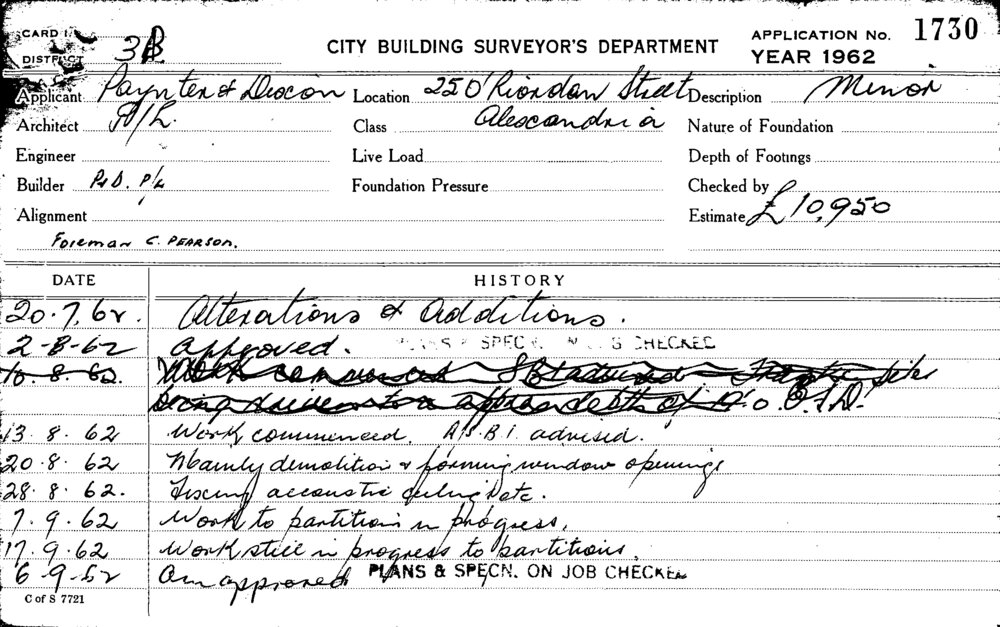 CARD
DISTRICT 3B
CITY BUILDING SURVEYOR'S DEPARTMENT
APPLICATION No. 1730
YEAR 1962
Applicant Paynter & Dixon Location 25 O'Riordan Street Description Minor
Architect P/L. Class Alexandria Nature of Foundation
Engineer Live Load Depth of Footings
Builder P&D. P/L Foundation Pressure Checked by
Alignment Estimate £10,950
Foreman C. PEARSON.
DATE HISTORY
20.7.62. Alterations & Additions.
2-8-62 Approved. SPECN. CHECKED
10.8.62. Work commenced
being driven to a approx depth of
13.8.62 Work commenced. A/S.B.I. advised.
20.8.62 Mainly demolition & forming window openings
28.8.62. Fixing accoustic ceiling etc.
7.9.62 Work to partition in progress.
17.9.62 Work still in progress to partitions.
6-9-62 approved PLANS & SPECN. ON JOB CHECKED
C of S 7721